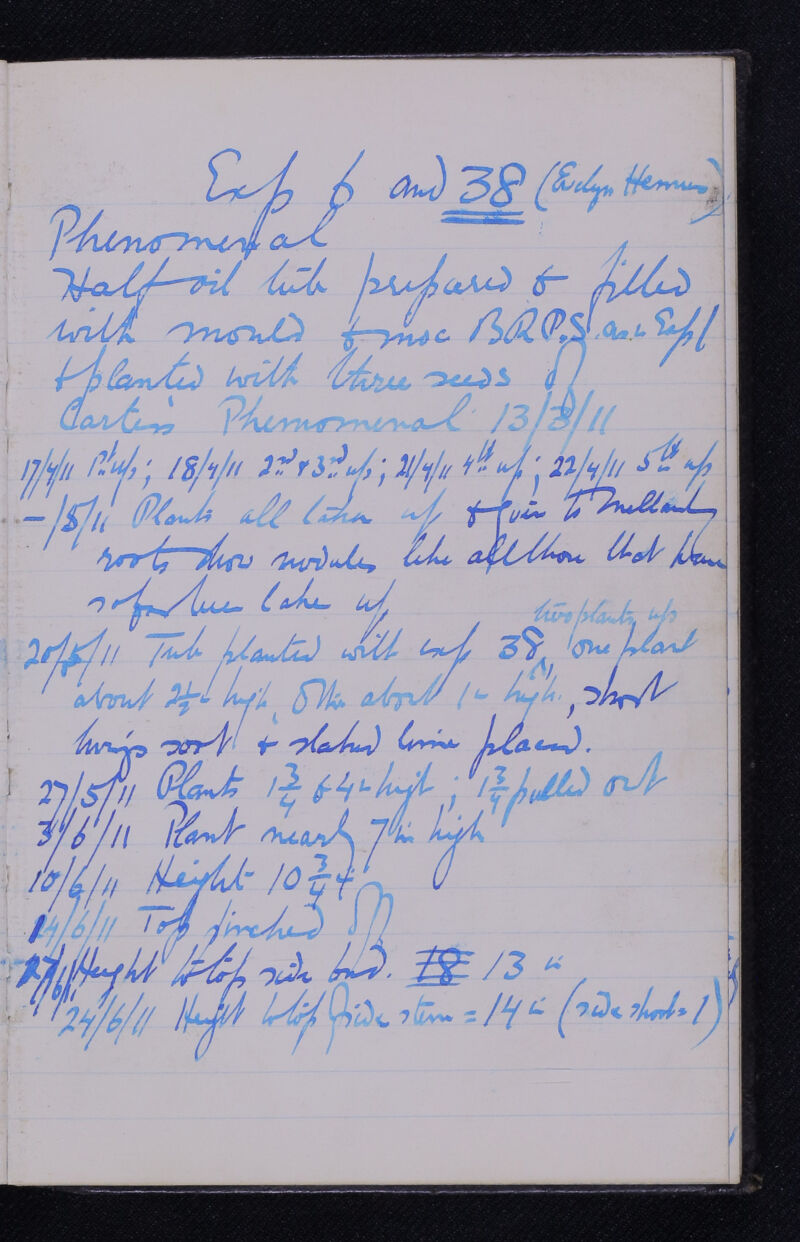 Exp 6 and 38 (Evelyn Hemus)
Phenomenal
Half oil tub prepared & filled
with mould & moc B R P.S. as in Exp 1
& planted with three seeds of
Carters Phenomenal 13/3/11
17/4/11 1st up; 18/4/11 2nd & 3rd up; 21/4/11 4th up; 22/4/11 5th up
—/5/11 Plants all taken up & given to
roots show nodules like all those that have
so far been taken up
two plants up
20/5/11 Tub planted with exp 38, one plant
about 2½ in high, other about 1 in high, short
twigs soot & slaked lime placed.
27/5/11 Plants 1¾ & 4 in high; 1¾ pulled out
3/6/11 Plant nearly 7 in high
10/6/11 Height 10¾
14/6/11 Top pinched off
17/6/11 Height to top side bud. 18 13 in
24/6/11 Height to top side stem = 14 in (side shoots 1)